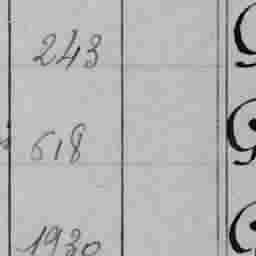 243
618
1930